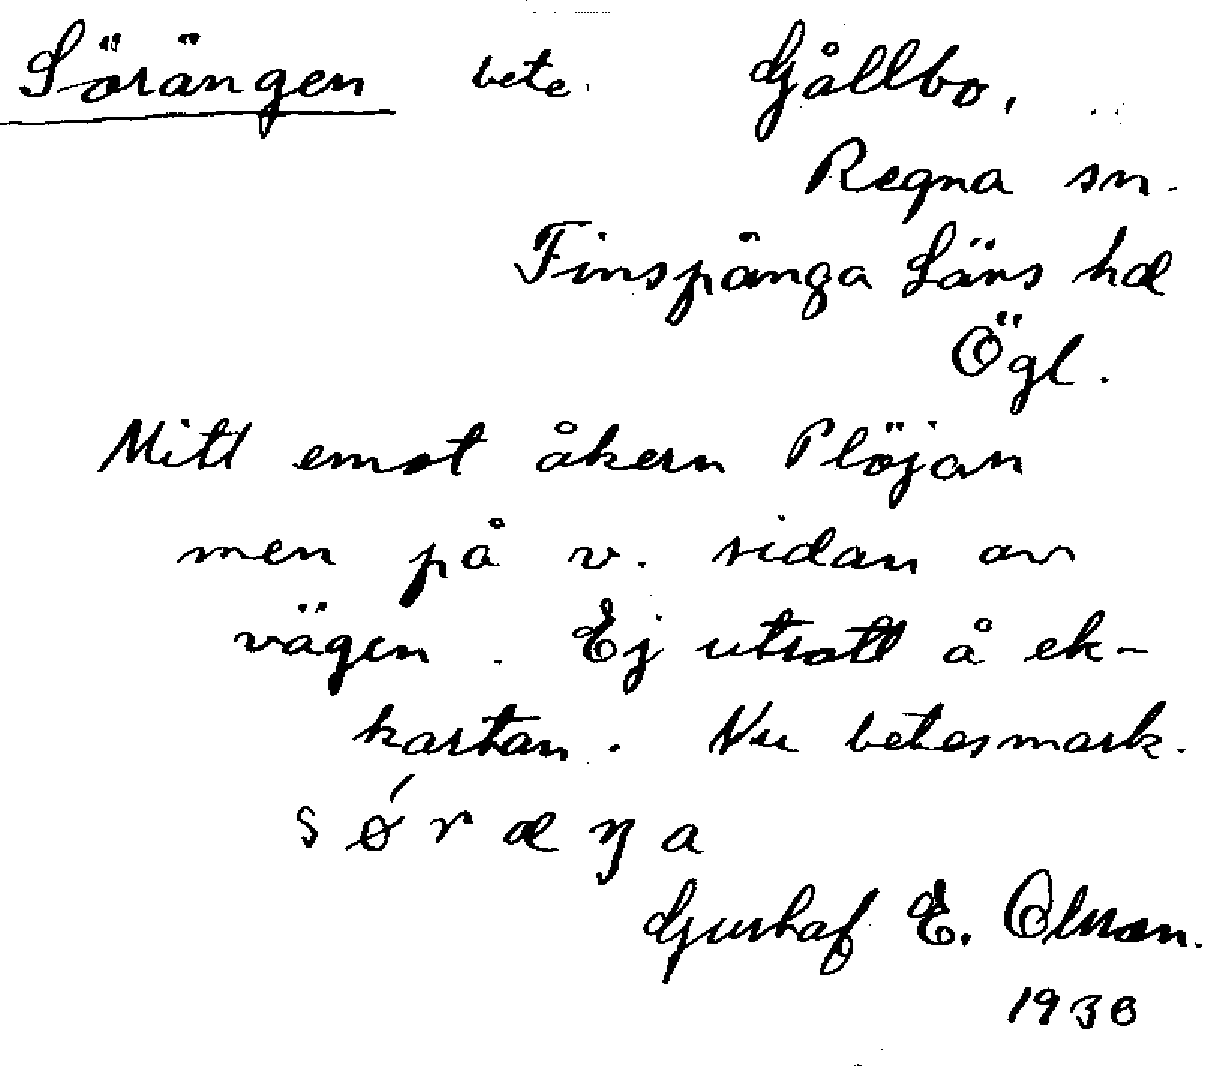 Sörängen bete. Gållbo,
Regna sn.
Finspånga Läns hd
Ögl.
Mitt emot åkern Plöjan
men på v. sidan av
vägen. Ej utsatt å ek-
kartan. Nu betesmark.
s ǿ r æ ŋ a
Gustaf E. Olsson.